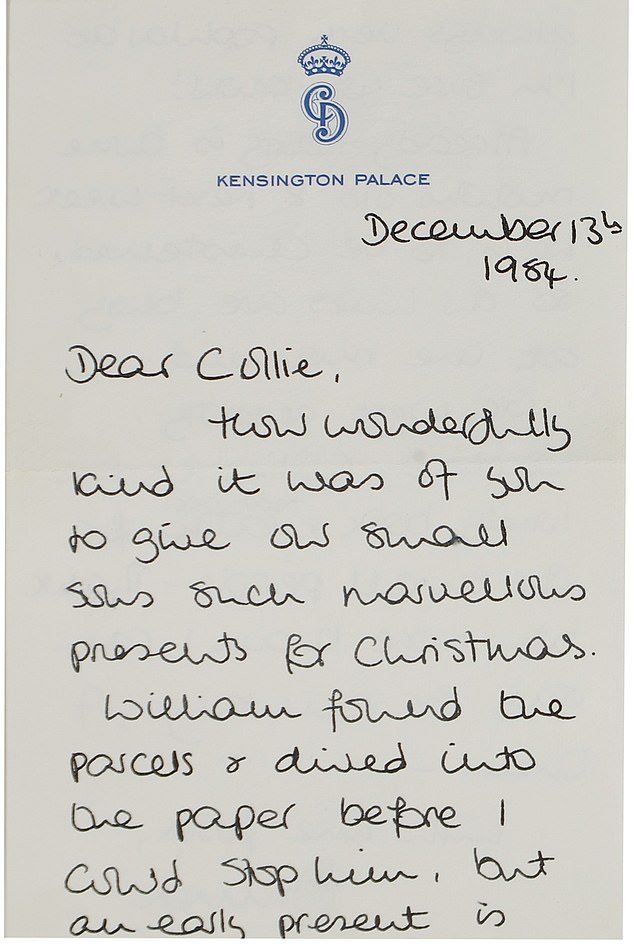 KENSINGTON PALACE
December 13th
1984.
Dear Collie,
How wonderfully
kind it was of you
to give our small
sons such marvellous
presents for Christmas.
William found the
parcels & dived into
the paper before I
could stop him, but
an early present is